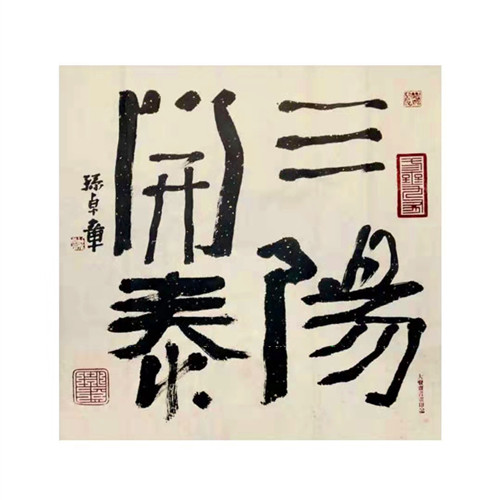 三陽
開泰
孫卓章